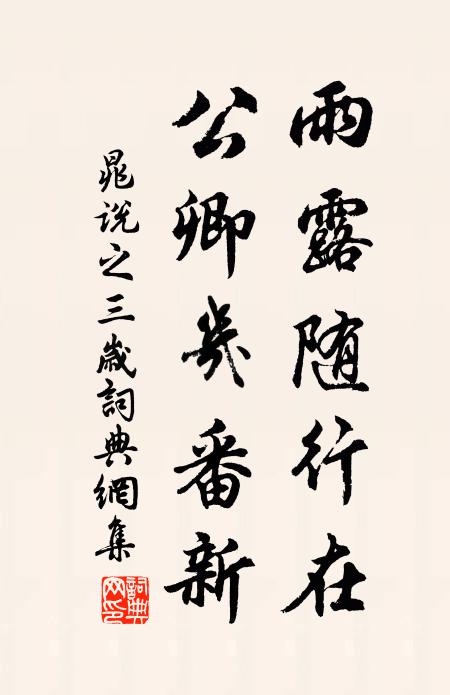 雨露随行在
公卿幾番新
晁說之三歲詞典網集
詞典网印